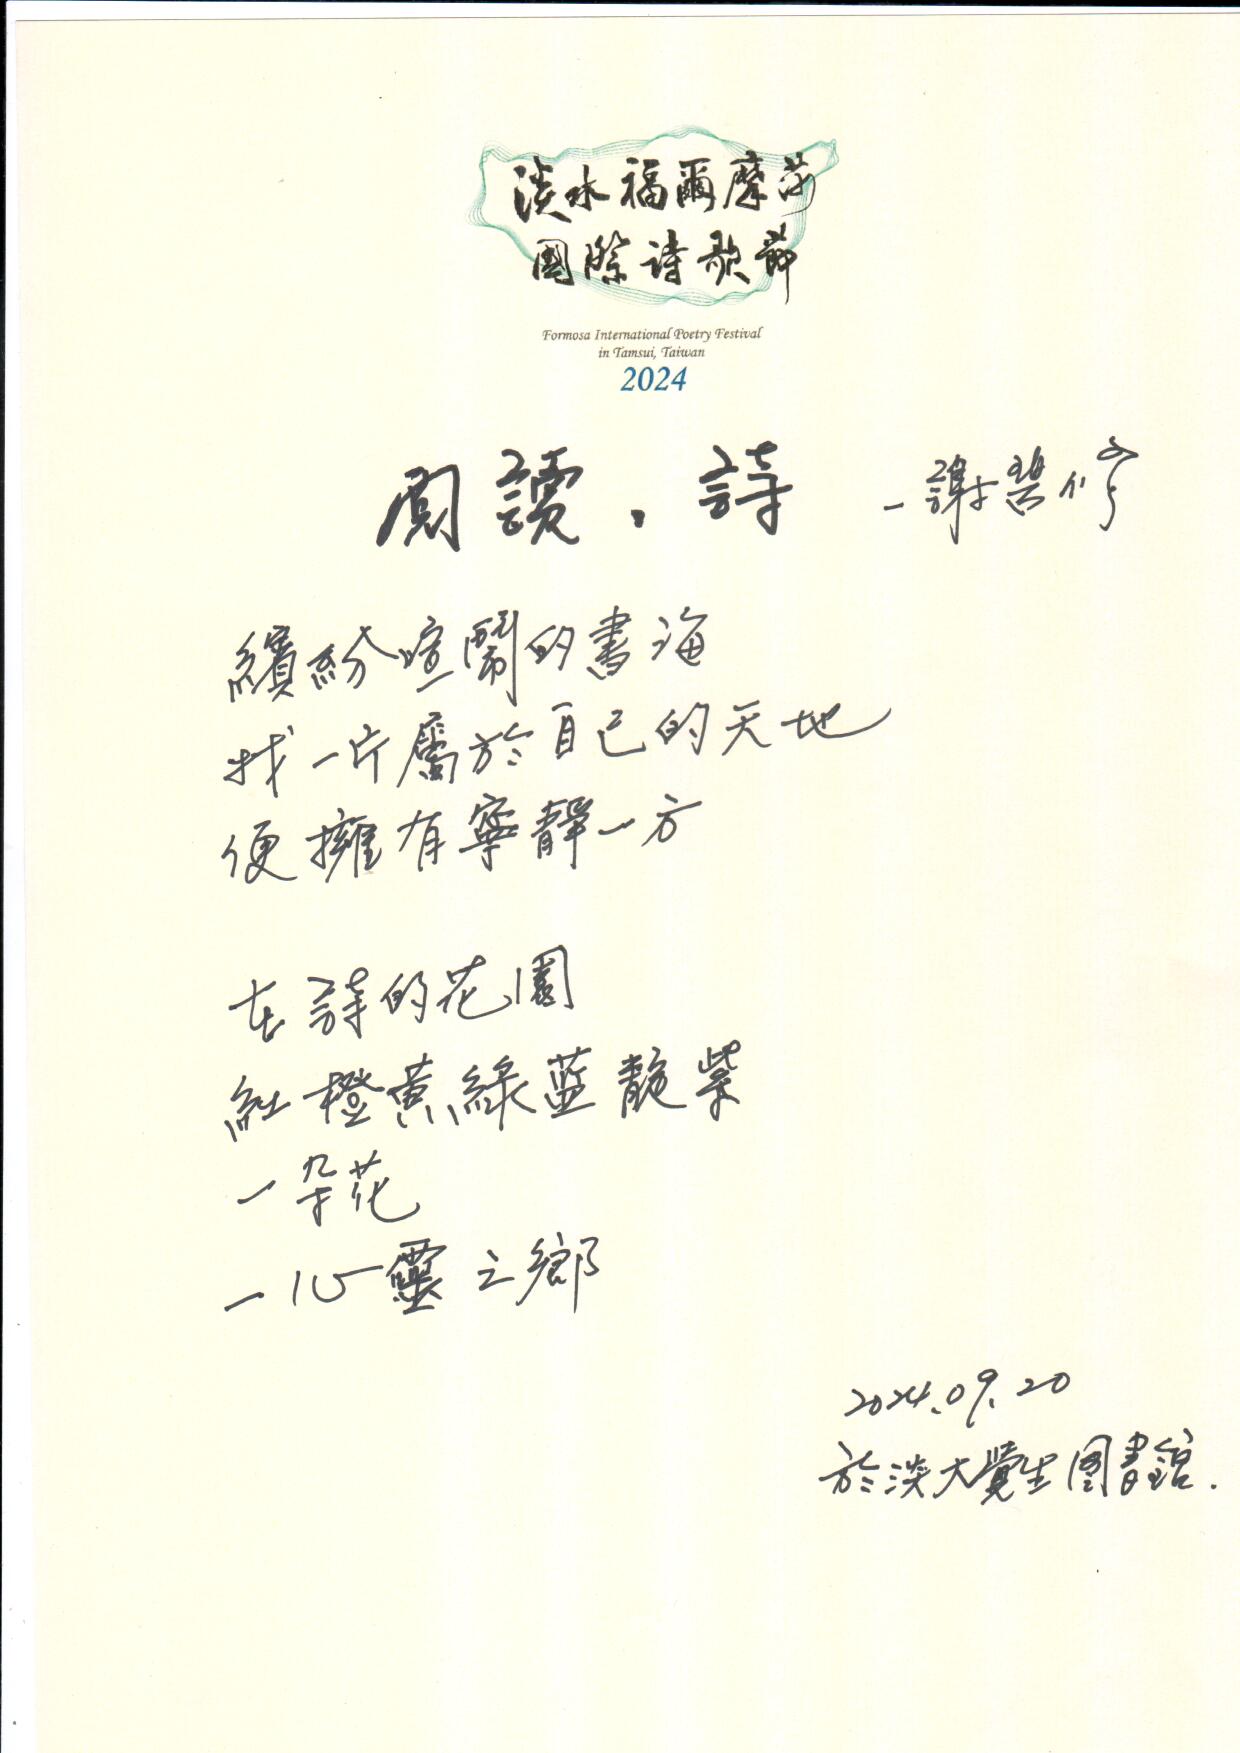 淡水福爾摩莎
國際詩歌節
Formosa International Poetry Festival
in Tamsui, Taiwan
2024
閱讀．詩 －謝碧修
繽紛喧鬧的書海
找一片屬於自己的天地
便擁有寧靜一方
在詩的花園
紅橙黃綠蓝靛紫
一朵花
一心靈之鄉
2024.09.20
於淡大覺生圖書館.